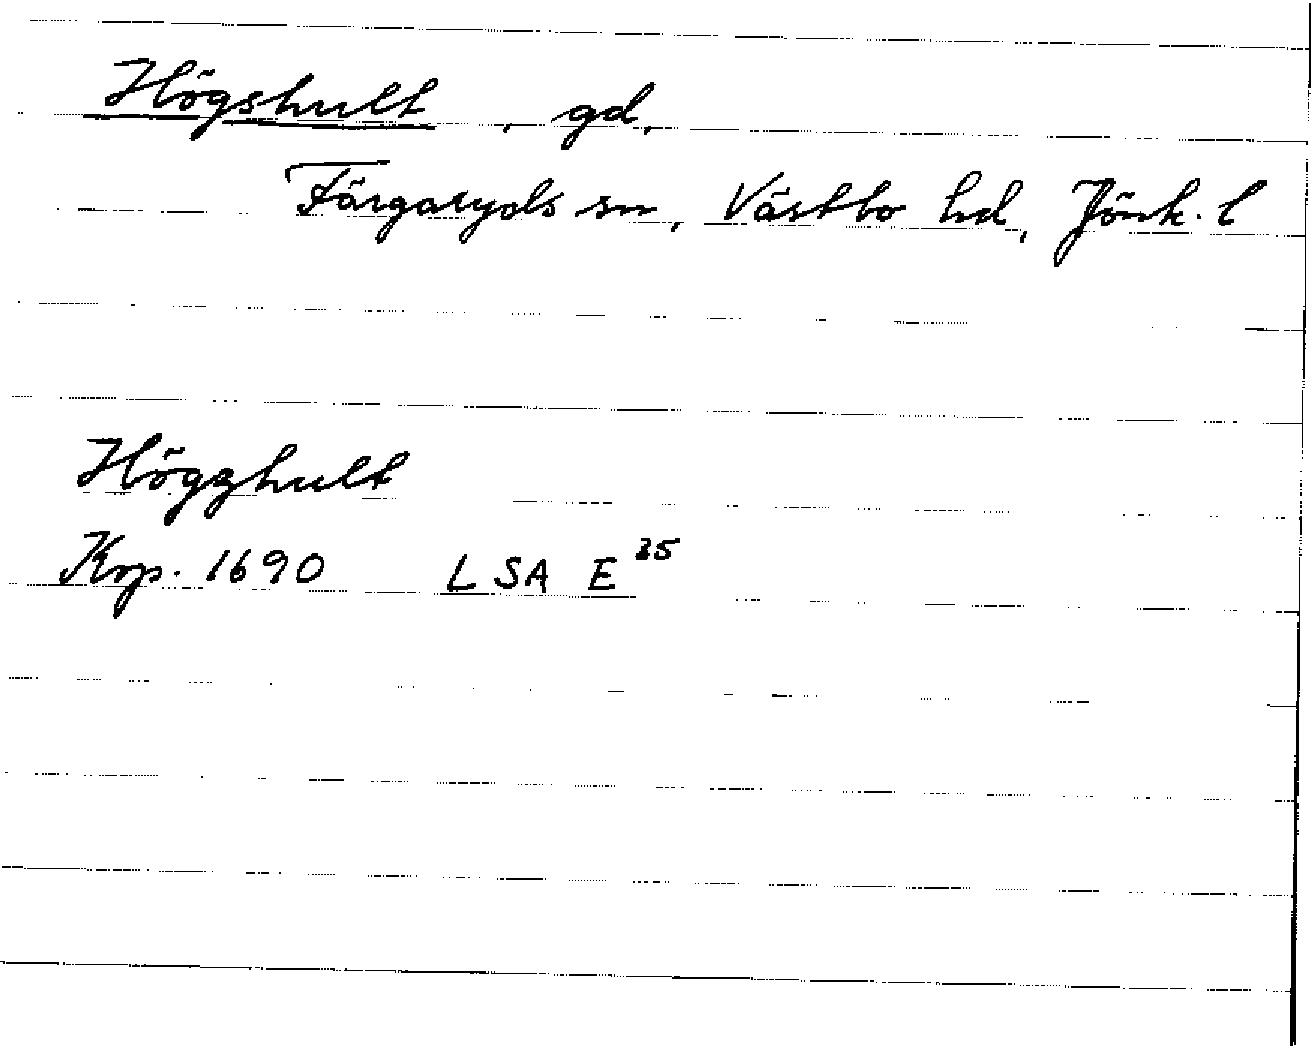 Högshult, gd,
Färgaryds sn, Västbo hd, Jönk. l
Högzhult
Krp. 1690 LSA E 25